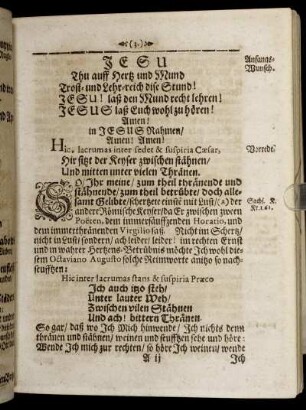 (3.)
JESU
Thu auff Hertz und Mund
Trost- und Lehr-reich diß Stund!
JESU! laß den Mund recht lehren!
JESUS laß Euch wohl zu hören!
Amen!
in JESUS Nahmen/
Amen! Amen!
Anfangs-
Wunsch.
Hic, lacrumas inter sedet & suspiria Cæsar,
Vorrede.
Hir sitzt der Keyser zwischen stähnen/
Und mitten unter vielen Thränen.
SO/ Ihr meine/ zum theil thränende und
stähnende/ zum theil betrübte/ doch alle-
samt Gelibte/ schertzete einst mit Lust/(a) der
andere Römische Keyser/ da Er zwischen zween
Poëten, dem immerseuffzenden Horatio, und
dem immer thränenden Virgilio saß. Nicht im Schertz/
nicht in Lust/ sondern/ ach leider! leider! im rechten Ernst
und in wahrer Hertzens-Betrübnis möchte Ich wohl die-
sem Octaviano Augusto solche Reimworte anitzo so nach-
seuffzen:
Hic inter lacrumas stans & suspiria Præco
Ich auch itzo steh/
Unter lauter Weh/
Zwischen vilen Stähnen
Und ach! bittern Thränen.
So gar/ daß wo Ich Mich hinwende/ Ich nichts denn
thränen und stähnen/ weinen und seuffzen sehe und höre:
Wende Ich mich zur rechten/ so hört Ich weinen/ wende
A ij
Ich